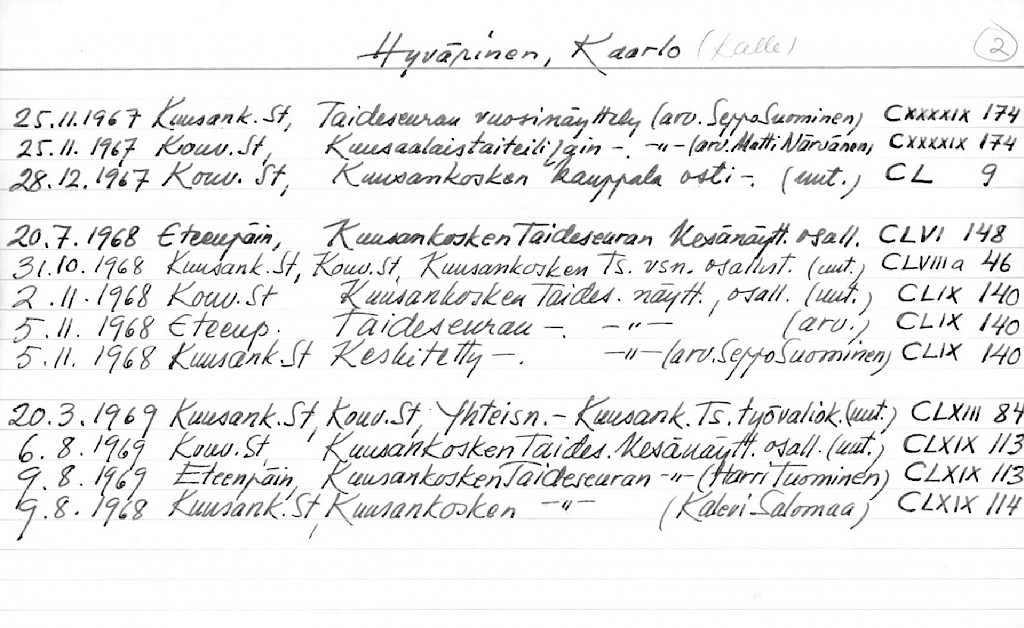 Hyvärinen, Kaarlo (Kalle) 2
25.11.1967 Kuusank.St, Taideseuran vuosinäyttely (arv. Seppo Suominen) CXXXXIX 174
25.11.1967 Kouv.St, Kuusaalaistaiteilijain -. -"- (arv. Matti Närvänen) CXXXXIX 174
28.12.1967 Kouv. St, Kuusankosken kauppala osti -. (uut.) CL 9
20.7.1968 Eteenpäin, Kuusankosken Taideseuran Kesänäytt. osall. CLVI 148
31.10.1968 Kuusank.St, Kouv.St, Kuusankosken Ts. vsn. osallist. (uut.) CLVIIIa 46
2.11.1968 Kouv.St Kuusankosken Taides. näytt., osall. (uut.) CLIX 140
5.11.1968 Eteenp. Taideseuran -. -"- (arv.) CLIX 140
5.11.1968 Kuusank.St Keskitetty -. -"- (arv. Seppo Suominen) CLIX 140
20.3.1969 Kuusank.St, Kouv.St, Yhteisn. - Kuusank.Ts. työvaliok. (uut.) CLXIII 84
6.8.1969 Kouv.St, Kuusankosken Taides. Kesänäytt. osall. (uut.) CLXIX 113
9.8.1969 Eteenpäin, Kuusankosken Taideseuran -"- (Harri Tuominen) CLXIX 113
9.8.1968 Kuusank.St, Kuusankosken -"- (Kalevi Salomaa) CLXIX 114